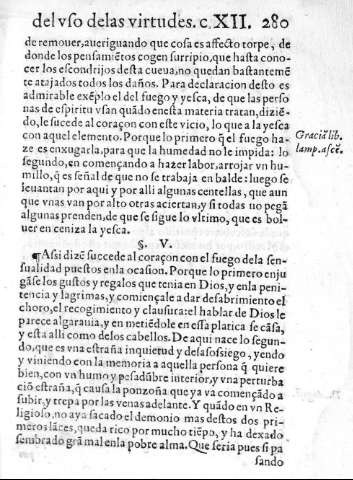 del vso delas virtudes. c. XII. 280
de remouer, aueriguando que cosa es affecto torpe, de
donde los pensamiẽtos cogen surripio, que hasta cono-
cer los escondrijos desta cueua, no quedan bastantemẽ
te atajados todos los daños. Para declaracion desto es
admirable exẽplo el del fuego y yesca, de que las perso
nas de espiritu vsan quãdo en esta materia tratan, diziẽ-
do, le sucede al coraçon con este vicio, lo que a la yesca
con aquel elemento. Porque lo primero q̃ el fuego ha-
ze es enxugarla, para que la humedad no le impida: lo
segundo, en començando a hazer labor, arrojar vn hu-
millo, q̃ es señal de que no se trabaja en balde: luego se
leuantan por aqui y por alli algunas centellas, que aun
que vnas van por alto otras aciertan, y si todas no pegã
algunas prenden, de que se sigue lo vltimo, que es bol-
uer en ceniza la yesca.
Graciã lib.
lamp. ascẽ.
§. V.
¶Assi dizẽ succede al coraçon con el fuego de la sen-
sualidad puestos en la ocasion. Porque lo primero enju
gãse los gustos y regalos que tenia en Dios, y en la peni-
tencia y lagrimas, y comiençale a dar desabrimiento el
choro, el recogimiento y clausura: el hablar de Dios le
parece algarauia, y en metiẽdole en essa platica se cãsa,
y esta alli como de los cabellos. De aqui nace lo segun-
do, que es vna estraña inquietud y desasossiego, yendo
y viniendo con la memoria a aquella persona q̃ quiere
bien, con vn humo y pesadũbre interior, y vna perturba
ciõ estraña, q̃ causa la ponzoña que ya va començãdo a
subir, y trepa por las venas adelante. Y quãdo en vn Re-
ligioso, no aya sacado el demonio mas destos dos pri-
meros lãces, queda rico por mucho tiẽpo, y ha dexado
sembrado grã mal en la pobre alma. Que seria pues si pa
sando